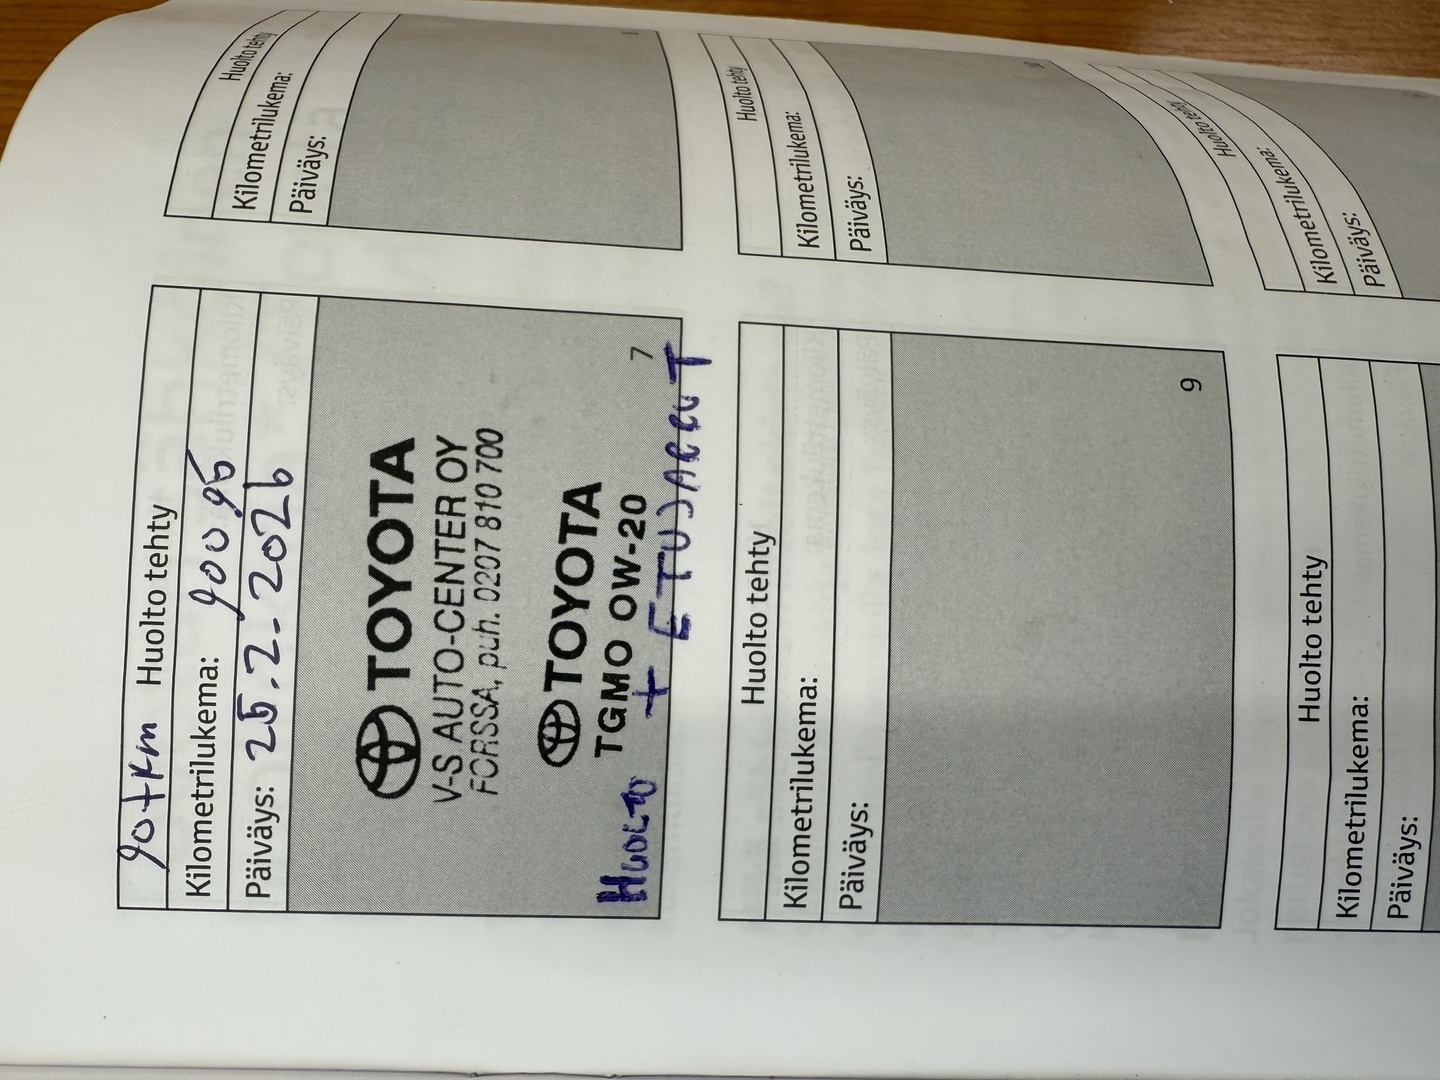 90 tkm Huolto tehty
Kilometrilukema: 90095
Päiväys: 25.2.2026
TOYOTA
V-S AUTO-CENTER OY
FORSSA, puh. 0207 810 700
TOYOTA
TGMO OW-20
HUOLTO + ETUJARRUT
7
Huolto tehty
Kilometrilukema:
Päiväys:
9
Huolto tehty
Kilometrilukema:
Päiväys:
Huolto tehty
Kilometrilukema:
Päiväys:
Huolto tehty
Kilometrilukema:
Päiväys:
Huolto tehty
Kilometrilukema:
Päiväys: